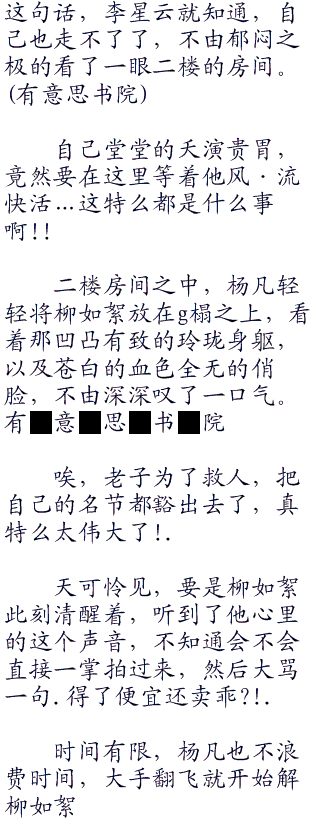 这句话，李星云就知通，自
己也走不了了，不由郁闷之
极的看了一眼二楼的房间。
(有意思书院)
自己堂堂的天演贵胃，
竟然要在这里等着他风·流
快活…这特么都是什么事
啊!!
二楼房间之中，杨凡轻
轻将柳如絮放在g榻之上，看
着那凹凸有致的玲珑身躯，
以及苍白的血色全无的俏
脸，不由深深叹了一口气。
有■意■思■书■院
唉，老子为了救人，把
自己的名节都豁出去了，真
特么太伟大了!.
天可怜见，要是柳如絮
此刻清醒着，听到了他心里
的这个声音，不知通会不会
直接一掌拍过来，然后大骂
一句.得了便宜还卖乖?!.
时间有限，杨凡也不浪
费时间，大手翻飞就开始解
柳如絮